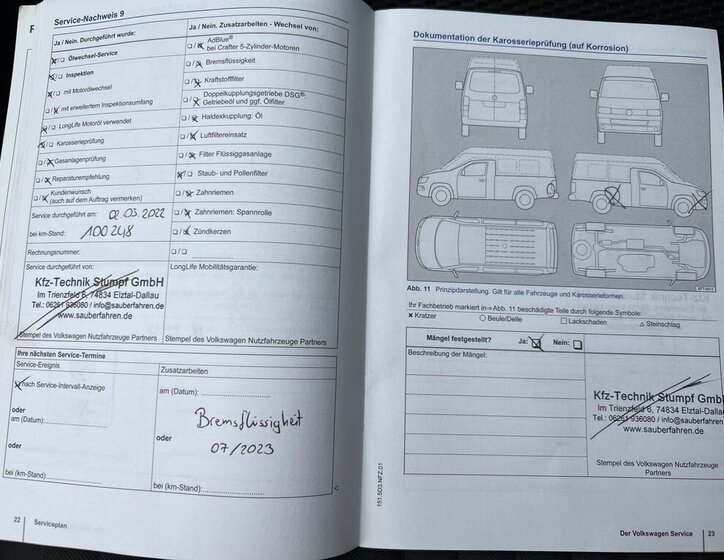 Service-Nachweis 9
Ja / Nein. Durchgeführt wurde:
Ölwechsel-Service
Inspektion
mit Motorölwechsel
mit erweitertem Inspektionsumfang
LongLife Motoröl verwendet
Karosserieprüfung
Gasanlagenprüfung
Reparaturempfehlung
Kundenwunsch
(auch auf dem Auftrag vermerken)
Service durchgeführt am: 02.05.2022
bei km-Stand: 100 248
Rechnungsnummer:
Service durchgeführt von:
Kfz-Technik Stumpf GmbH
Im Trienzfeld 6, 74834 Elztal-Dallau
Tel.: 06261 936080 / info@sauberfahren.de
www.sauberfahren.de
Stempel des Volkswagen Nutzfahrzeuge Partners
Ja / Nein. Zusatzarbeiten - Wechsel von:
AdBlue®
bei Crafter 5-Zylinder-Motoren
Bremsflüssigkeit
Kraftstofffilter
Doppelkupplungsgetriebe DSG®-
Getriebeöl und ggf. Ölfilter
Haldexkupplung: Öl
Luftfiltereinsatz
Filter Flüssiggasanlage
Staub- und Pollenfilter
Zahnriemen
Zahnriemen: Spannrolle
Zündkerzen
LongLife Mobilitätsgarantie:
Stempel des Volkswagen Nutzfahrzeuge Partners
Ihre nächsten Service-Termine
Service-Ereignis
nach Service-Intervall-Anzeige
oder
am (Datum):
oder
bei (km-Stand):
Zusatzarbeiten
am (Datum):
Bremsflüssigkeit
oder
07/2023
bei (km-Stand):
22 Serviceplan
Dokumentation der Karosserieprüfung (auf Korrosion)
Abb. 11 Prinzipdarstellung. Gilt für alle Fahrzeuge und Karosserieformen.
Ihr Fachbetrieb markiert in ⇒ Abb. 11 beschädigte Teile durch folgende Symbole:
× Kratzer ○ Beule/Delle □ Lackschaden △ Steinschlag
Mängel festgestellt? Ja: Nein:
Beschreibung der Mängel:
Kfz-Technik Stumpf GmbH
Im Trienzfeld 6, 74834 Elztal-Dallau
Tel.: 06261 936080 / info@sauberfahren.de
www.sauberfahren.de
Stempel des Volkswagen Nutzfahrzeuge
Partners
151.5D3.NFZ.01
Der Volkswagen Service 23